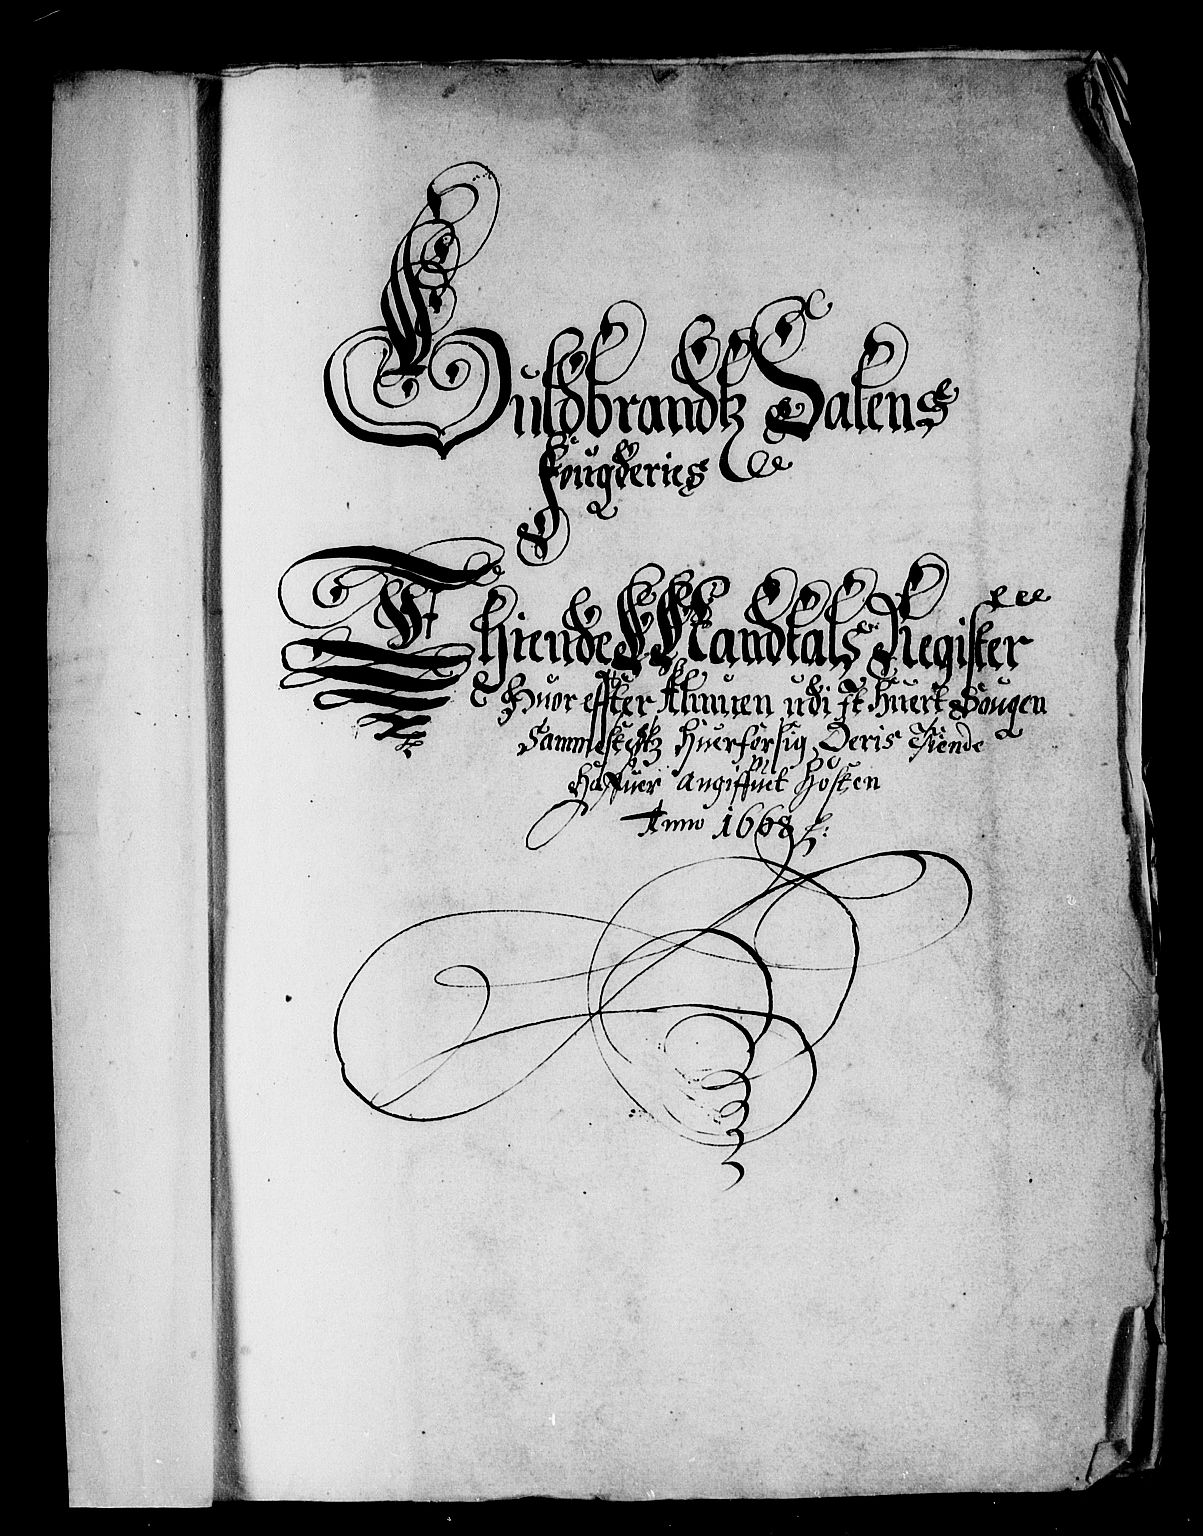 Guldbrandtz Dalens
fougderies
Thiende Mandtals Register
Huor effter Almuen udi it huert Sougen
Sammestetz huer for sig Deris Tiende
haffuer angiffuet høsten
Anno 1668